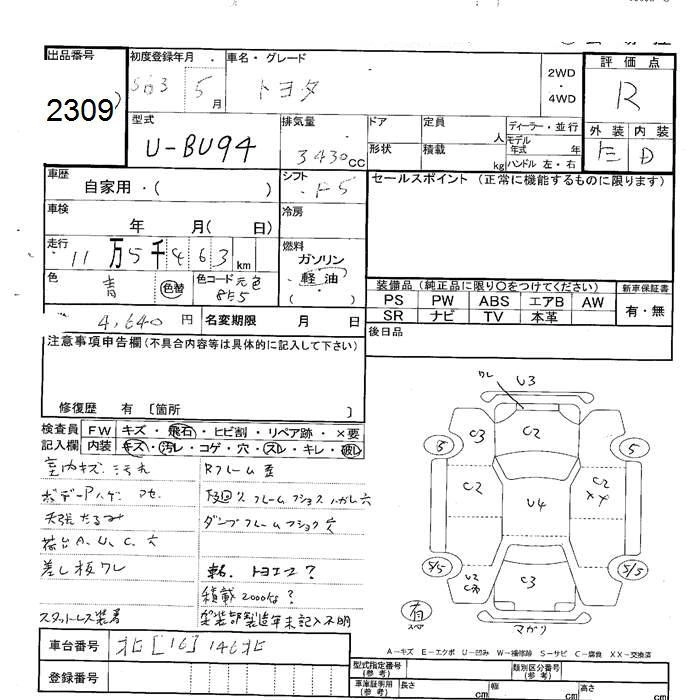 出品番号
2309
初度登録年月
S63 5月
車名・グレード
トヨタ
2WD
・
4WD
評価点
R
外装 内装
E D
型式
U-BU94
排気量
3430cc
ドア
形状
定員 人
積載 kg
ディーラー・並行
モデル年式 年
ハンドル 左・右
車歴
自家用・( )
シフト
F5
セールスポイント (正常に機能するものに限ります)
車検
年 月( 日)
冷房
走行
11万5千463km
燃料
ガソリン
軽油
( )
色
青
色替
色コード 元色
8E5
装備品(純正品に限り○をつけてください)
新車保証書
PS PW ABS エアB AW
SR ナビ TV 本革
有・無
4,640円
名変期限 月 日
後日品
注意事項申告欄(不具合内容等は具体的に記入して下さい)
修復歴 有 [箇所 ]
検査員
記入欄
FW キズ・飛石・ヒビ割・リペア跡・×要
内装 キズ・汚レ・コゲ・穴・スレ・キレ・破レ
室内キズ 汚れ
Rフレーム歪
ボデーPハゲ
下回り フレーム ハガレ 穴
天張たるみ
ダンプフレーム 穴
荷台A、U、C、穴
差し板ワレ
車名、トヨエース?
積載2000kg?
スタットレス装着
架装部製造年未記入不明
ワレ
U3
C3
C2
5
5
C2
U4
C2
XX
5/5
5/5
U2
C3
有
スペア
マガリ
A-キズ E-エクボ U-凹み W-補修跡 S-サビ C-腐食 XX-交換済
車台番号
北[16]146北
登録番号
型式指定番号
(参考)
類別区分番号
(参考)
車庫証明用
(参考)
長さ cm
幅 cm
高さ cm